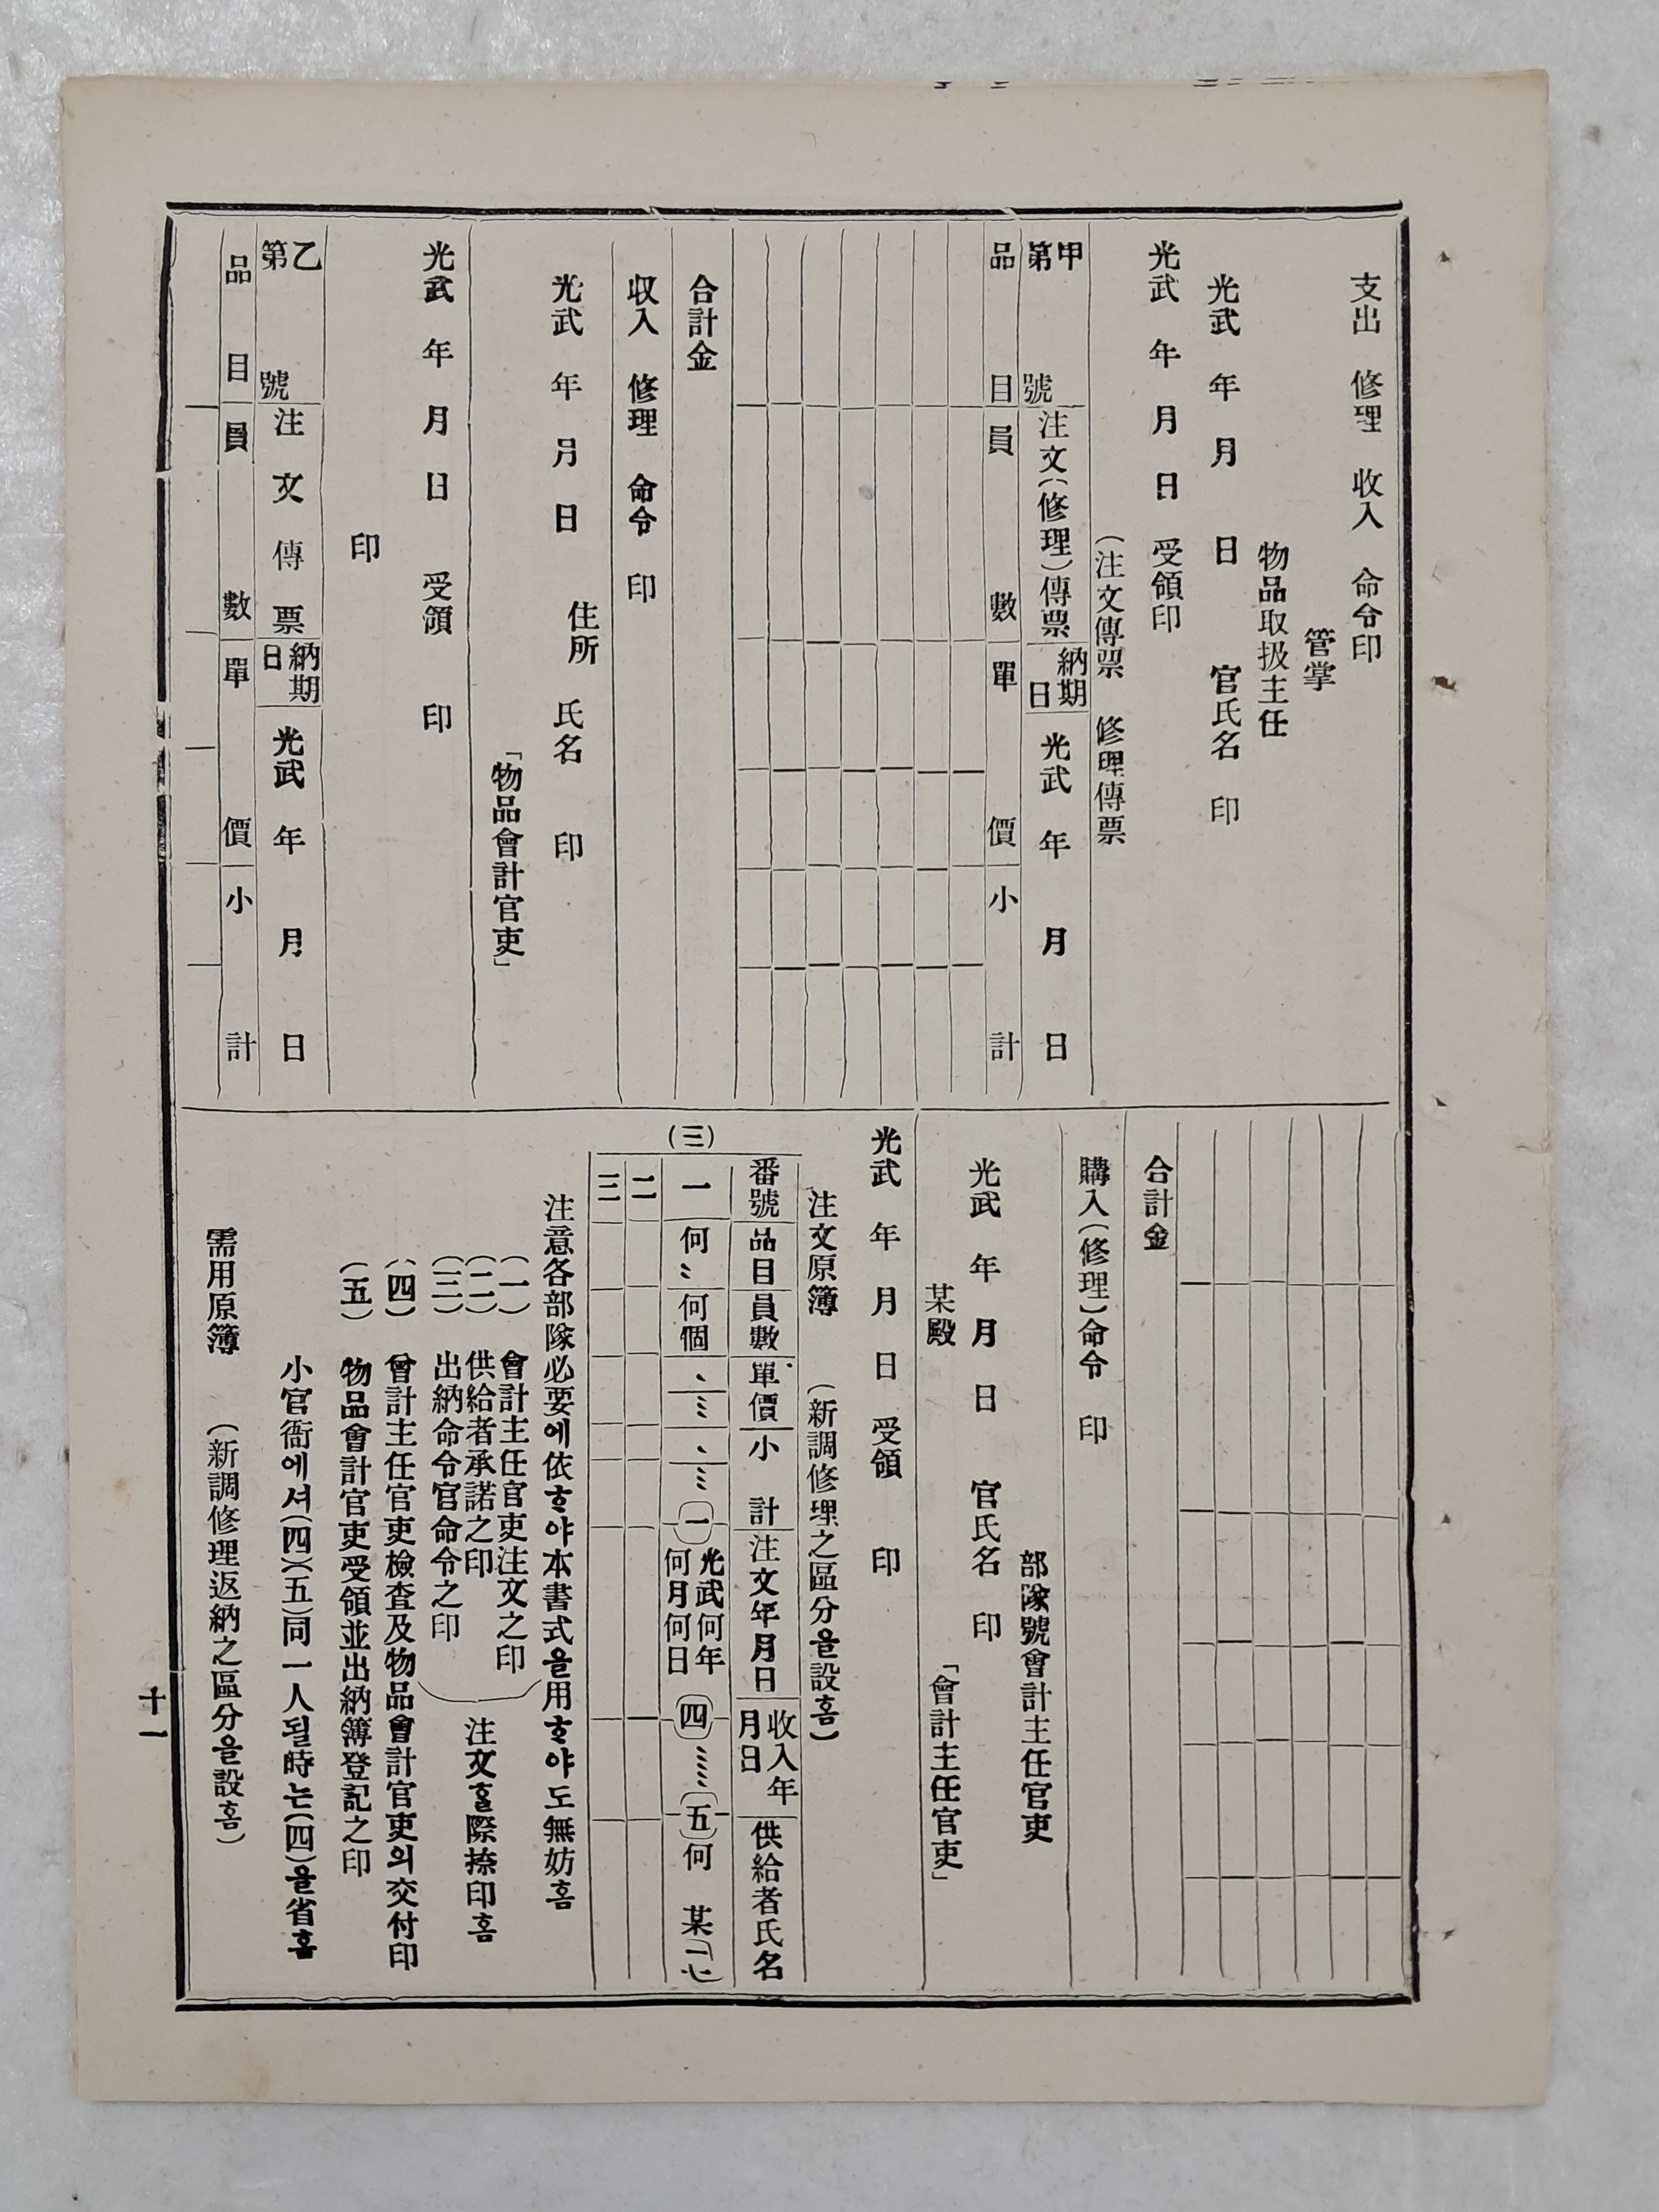 支出 修理 收入 命令印
管掌
物品取扱主任
光武 年 月 日 官氏名 印
光武 年 月 日 受領印
(注文傳票 修理傳票
甲第 號 注文(修理)傳票 納期日 光武 年 月 日
品目 員數 單價 小計
合計金
収入 修理 命令 印
住所
光武 年 月 日 氏名 印
「物品會計官吏」
光武 年 月 日 受領 印
印
乙第 號 注文傳票 納期日 光武 年 月 日
品目 員數 單價 小計
合計金
購入(修理)命令 印
部隊號會計主任官吏
光武 年 月 日 官氏名 印
某殿 「會計主任官吏」
光武 年 月 日 受領 印
注文原簿 (新調修理之區分을設홈)
(三)
番號 品目 員數 單價 小計 注文年月日 收入年月日 供給者氏名
一 何〻 何個 (一) 光武何年何月何日 (四) (五) 何某
二
三
注意各部隊必要에依ᄒᆞ야本書式을用ᄒᆞ야도無妨홈
(一) 會計主任官吏注文之印
(二) 供給者承諾之印
(三) 出納命令官命令之印
注文ᄒᆞᆯ際捺印홈
(四) 會計主任官吏檢査及物品會計官吏의交付印
(五) 物品會計官吏受領並出納簿登記之印
小官衙에셔(四)(五)同一人될時는(四)을省홈
需用原簿 (新調修理返納之區分을設홈)
十一